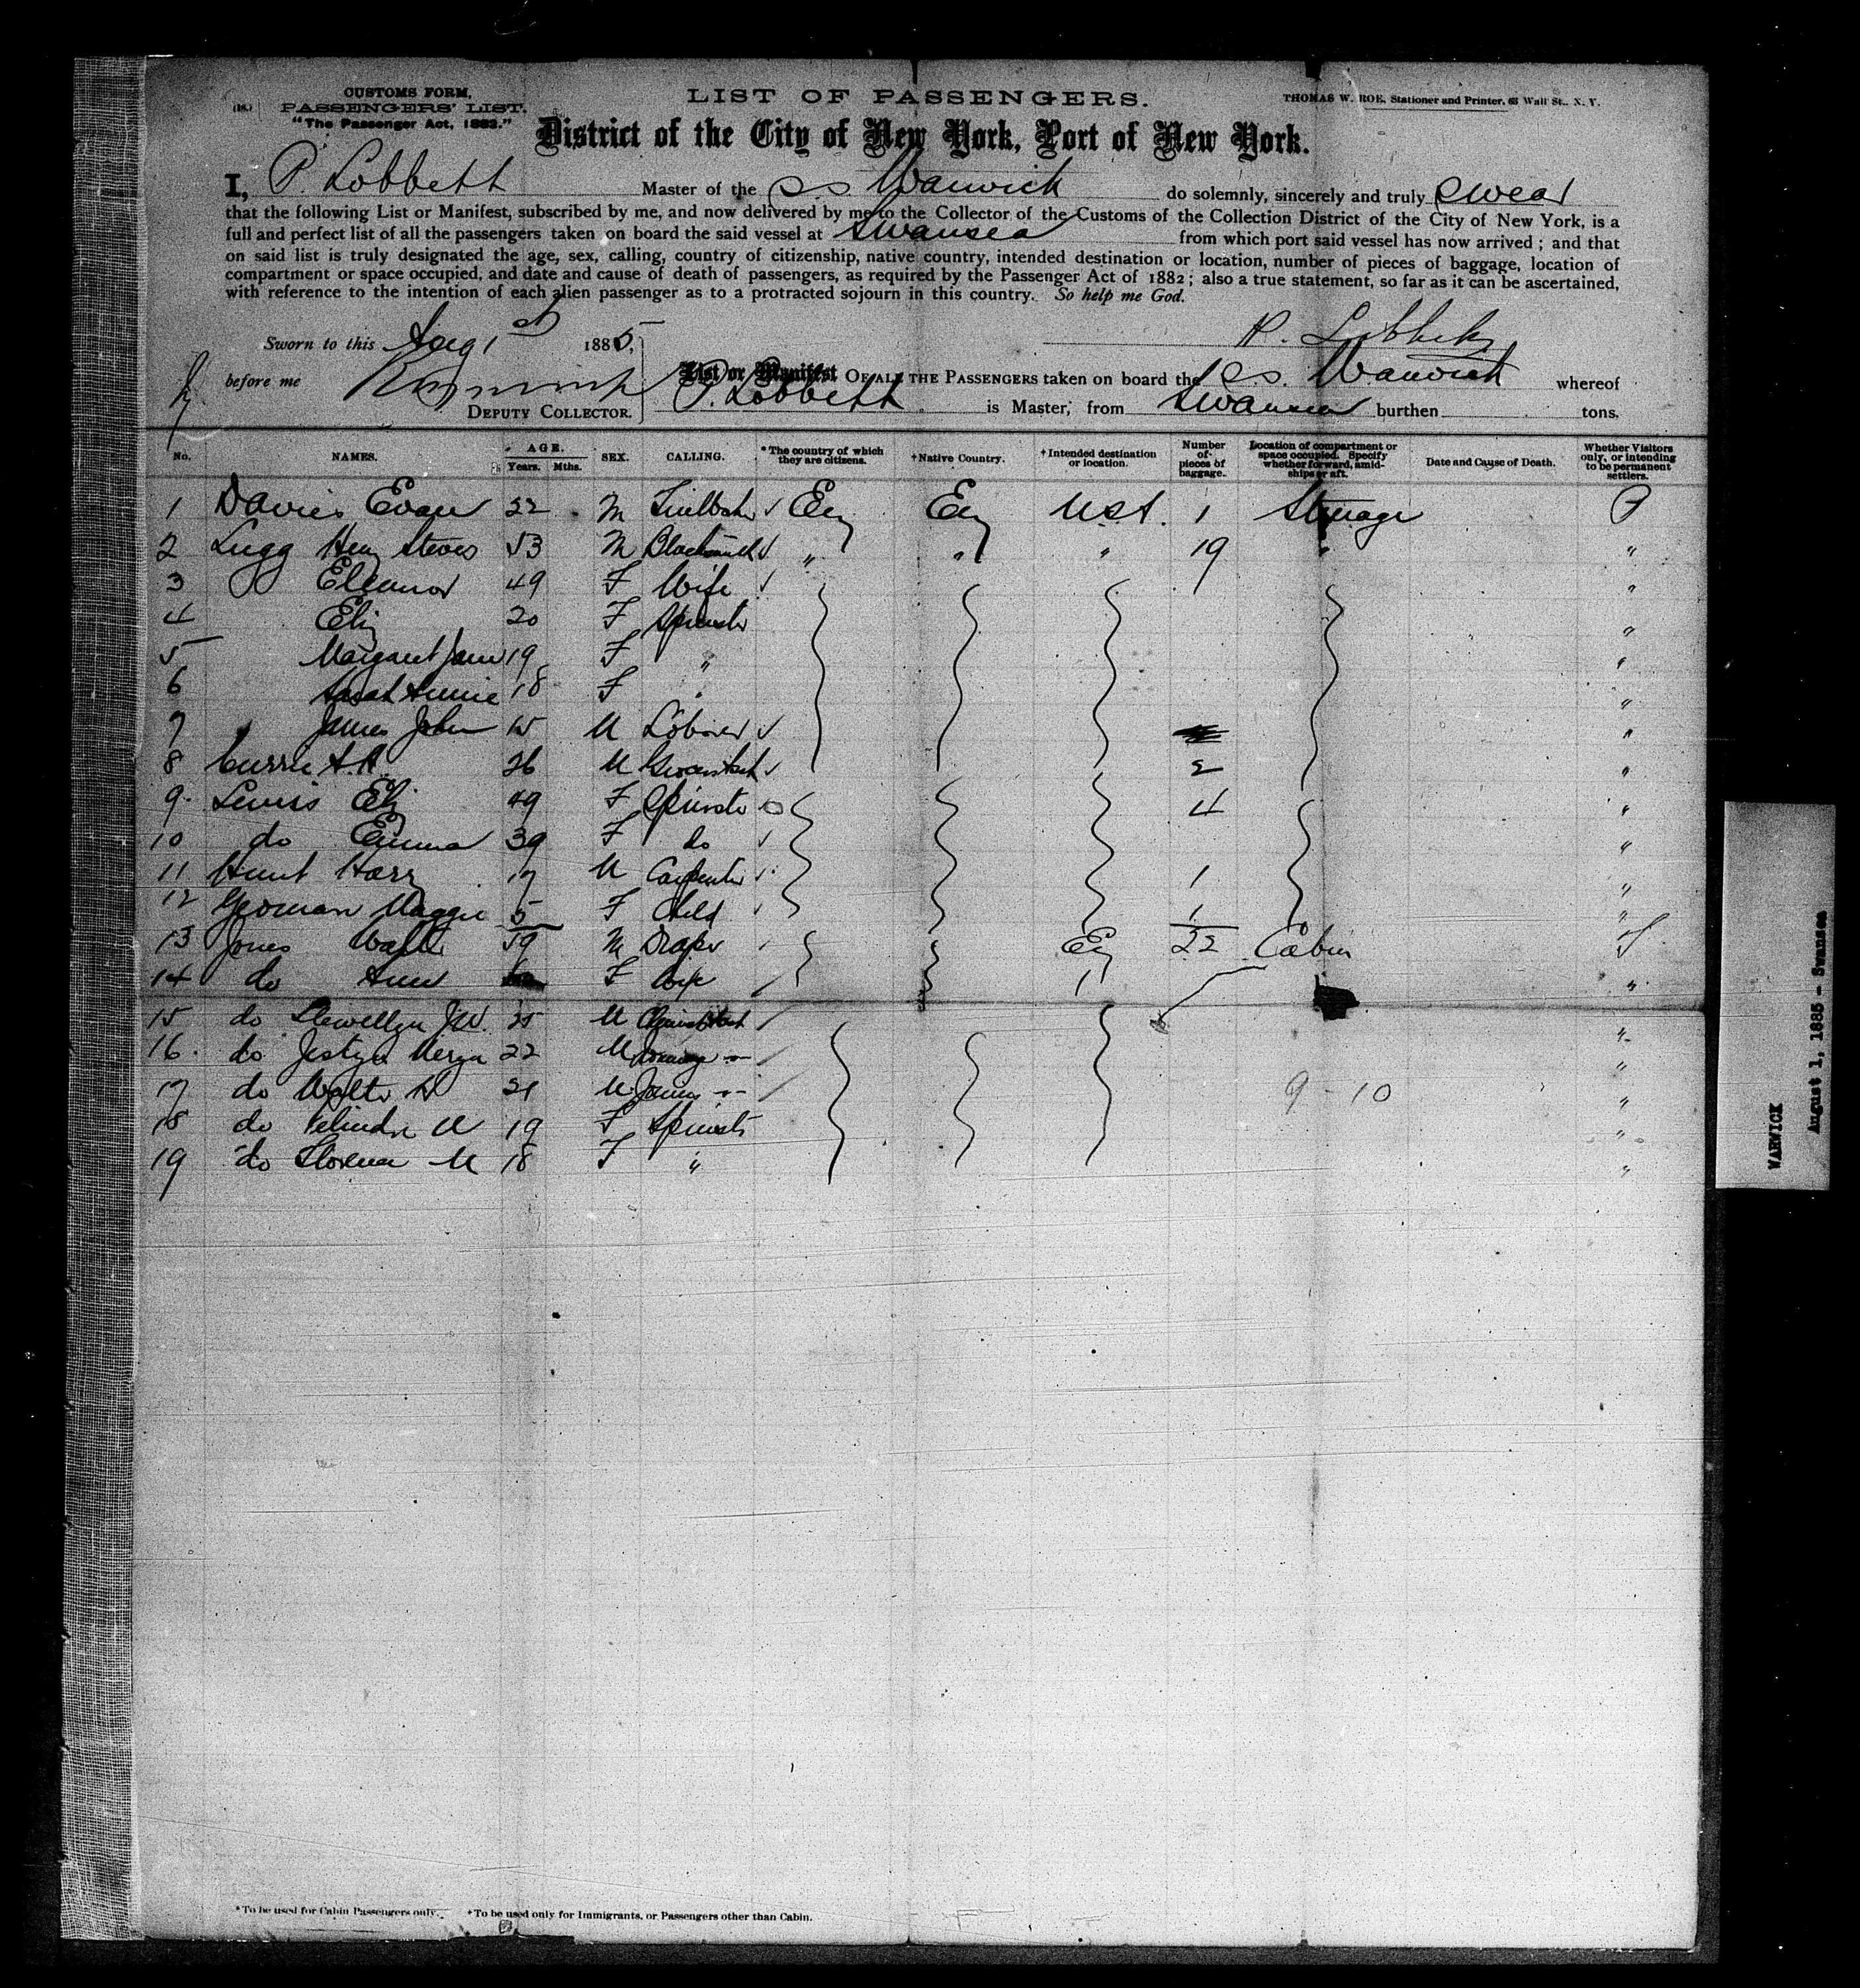 CUSTOMS FORM,
(18.) PASSENGERS' LIST.
"The Passenger Act, 1882."
LIST OF PASSENGERS.
THOMAS W. ROE, Stationer and Printer, 63 Wall St., N. Y.
District of the City of New York, Port of New York.
I, P. Lobbett Master of the SS Warwick do solemnly, sincerely and truly swear
that the following List or Manifest, subscribed by me, and now delivered by me to the Collector of the Customs of the Collection District of the City of New York, is a
full and perfect list of all the passengers taken on board the said vessel at Swansea from which port said vessel has now arrived; and that
on said list is truly designated the age, sex, calling, country of citizenship, native country, intended destination or location, number of pieces of baggage, location of
compartment or space occupied, and date and cause of death of passengers, as required by the Passenger Act of 1882; also a true statement, so far as it can be ascertained,
with reference to the intention of each alien passenger as to a protracted sojourn in this country. So help me God.
Sworn to this Aug 1st 1885, P. Lobbett
before me
DEPUTY COLLECTOR.
List or Manifest OF ALL THE PASSENGERS taken on board the SS. Warwick whereof
P. Lobbett is Master, from Swansea burthen tons.
No. NAMES. AGE. Years. Mths. SEX. CALLING. *The country of which they are citizens. †Native Country. †Intended destination or location. Number of pieces of baggage. Location of compartment or space occupied. Specify whether forward, amidships or aft. Date and Cause of Death. Whether Visitors only, or intending to be permanent settlers.
1 Davies Evan 22 M Eng Eng USA. 1 Steerage P
2 Lugg Heny Steves 53 M Blacksmith " " " 19 " "
3 Eleanor 49 F Wife "
4 Eliz 20 F Spinster "
5 Margaret Jane 19 F " "
6 Sarah Annie 18 F " "
7 James John 15 M Laborer "
8 Currie A.R 26 M 2 "
9 Lewis Eliz 49 F Spinster 4 "
10 do Emma 39 F do "
11 Hunt Harry 17 M Carpenter 1 "
12 Yeoman Maggie 5 F Child 1 "
13 Jones Walter 59 M Draper Eng 22 Cabin
14 do Ann F Wife "
15 do Llewellyn JW. 25 M "
16 do Jestyn 22 M "
17 do Walter D 21 M "
18 do M 19 F Spinster "
19 do Florence M 18 F " "
9 - 10
*To be used for Cabin Passengers only. †To be used only for Immigrants, or Passengers other than Cabin.
WARWICK
August 1, 1885 - Swansea